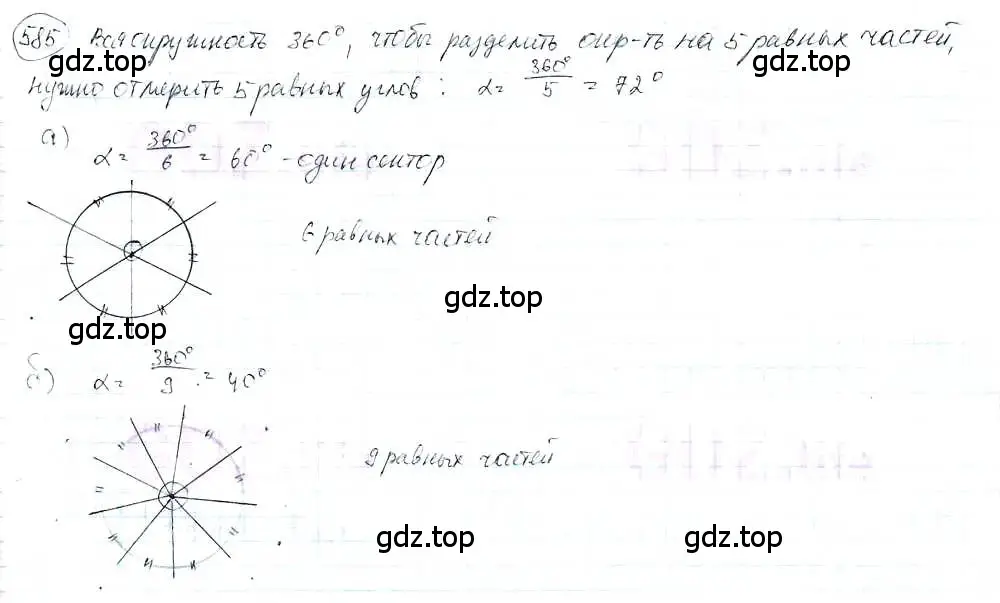 585 Вся окружность 360°, чтобы разделить окр-ть на 5 равных частей,
нужно отмерить 5 равных углов : α = 360°/5 = 72°
gdz.top
gdz.top
а) α = 360°/6 = 60° - один сектор
6 равных частей
gdz.top
gdz.top
б) α = 360°/9 = 40°
9 равных частей
gdz.top
gdz.top